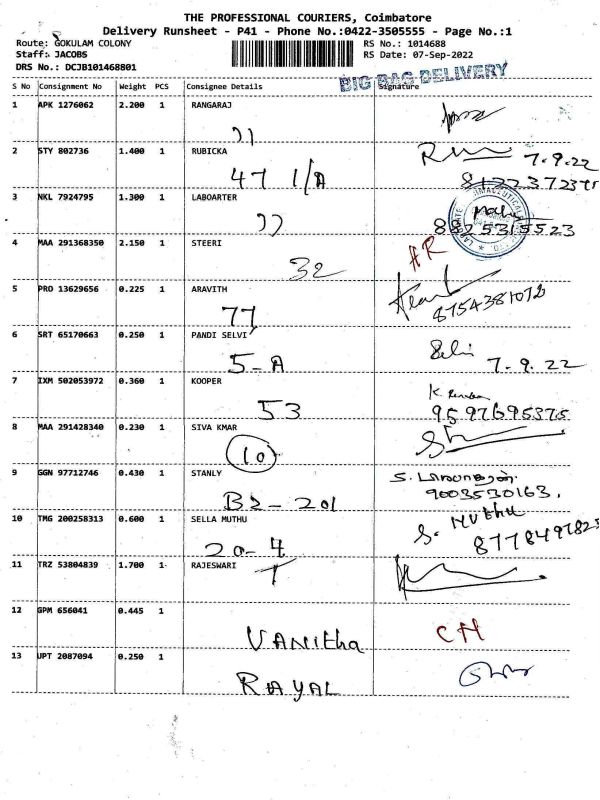 THE PROFESSIONAL COURIERS, Coimbatore
Delivery Runsheet - P41 - Phone No.:0422-3505555 - Page No.:1
Route: GOKULAM COLONY RS No.: 1014688
Staff: JACOBS RS Date: 07-Sep-2022
DRS No.: DCJB101468801
BIG BAG DELIVERY
S No Consignment No Weight PCS Consignee Details Signature
1 APK 1276062 2.200 1 RANGARAJ
2 STY 802736 1.400 1 RUBICKA
7.9.22
47 1/A
3 NKL 7924795 1.300 1 LABOARTER
8825315523
4 MAA 291368350 2.150 1 STEERI
HR
32
5 PRO 13629656 0.225 1 ARAVITH
77 8754381072
6 SRT 65170663 0.250 1 PANDI SELVI
5-A 7.9.22
7 IXM 502053972 0.360 1 KOOPER
53 9597695375
8 MAA 291428340 0.230 1 SIVA KMAR
10
9 GGN 97712746 0.430 1 STANLY
B2-201 9003530163.
10 TMG 200258313 0.600 1 SELLA MUTHU
S. Muthu
20-4
11 TRZ 53804839 1.700 1 RAJESWARI
12 GPM 656041 0.445 1
VANitha CH
13 UPT 2087094 0.250 1
RAYAL